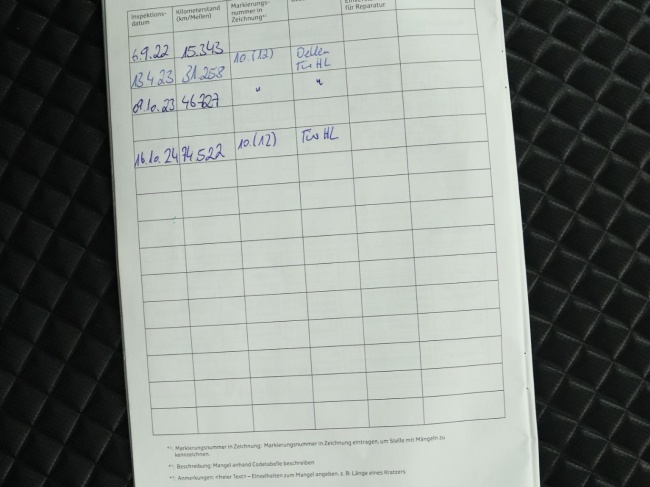 Inspektions-
datum
Kilometerstand
(km/Meilen)
Markierungs-
nummer in
Zeichnung*¹
für Reparatur
6.9.22 15.343 10.(12) Dellen
13.4.23 31.258 Tür HL
09.10.23 46727 " "
16.10.24 74522 10.(12) Tür HL
*¹: Markierungsnummer in Zeichnung: Markierungsnummer in Zeichnung eintragen, um Stelle mit Mängeln zu
kennzeichnen.
*²: Beschreibung: Mangel anhand Codetabelle beschreiben
*³: Anmerkungen: <freier Text> – Einzelheiten zum Mangel angeben, z. B. Länge eines Kratzers